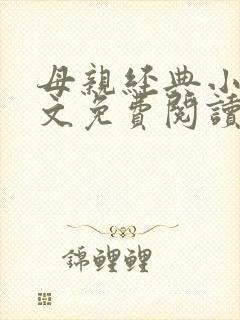 母親經典小
文免費閱讀
錦鯉鯉